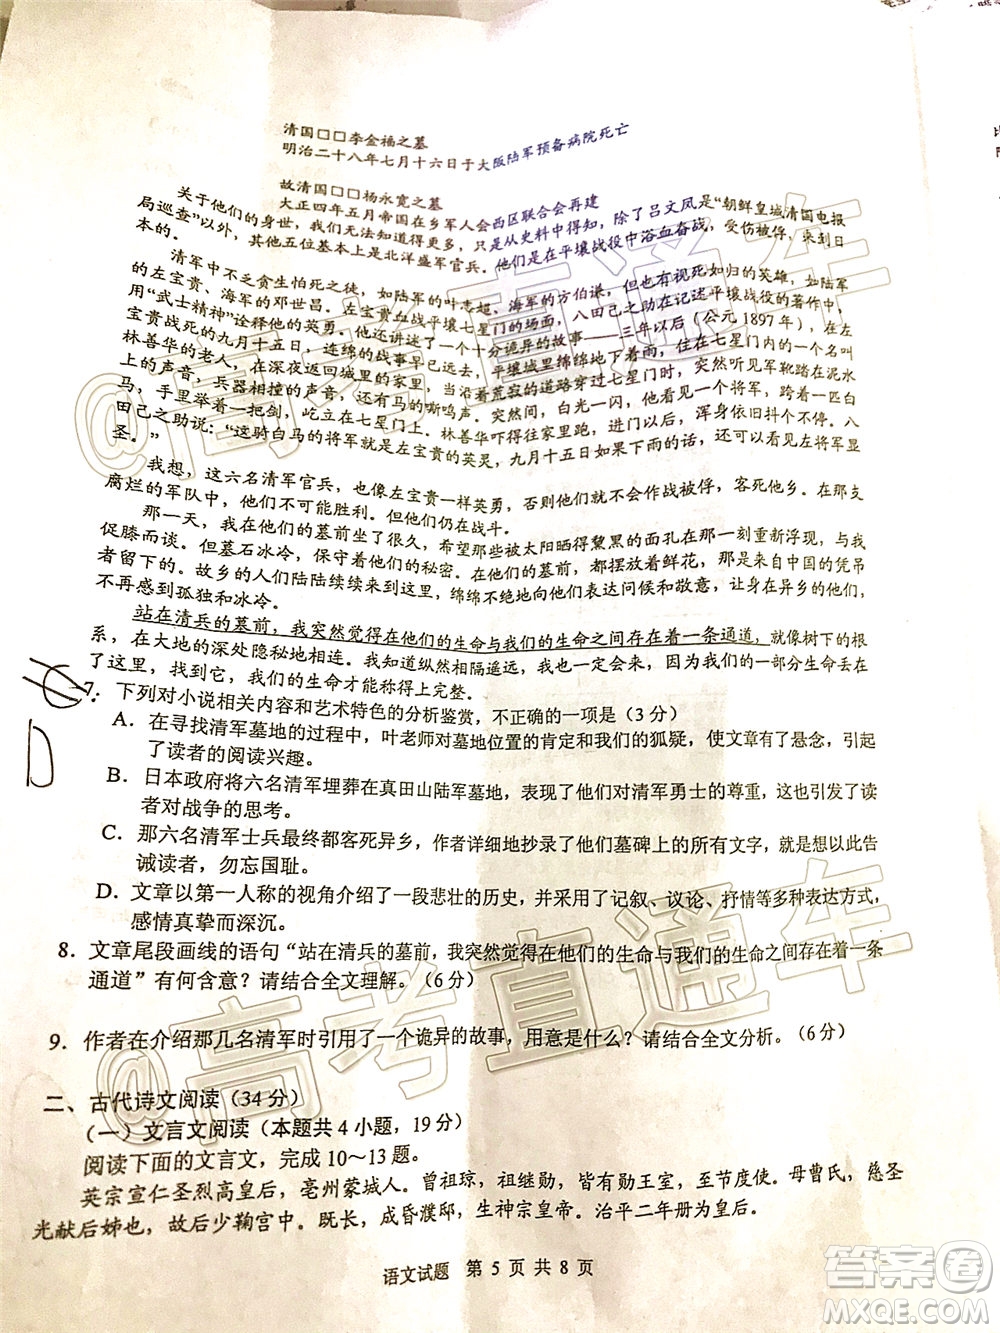 清国□□李金福之墓
明治二十八年七月十六日于大阪陆军预备病院死亡
故清国□□杨永宽之墓
大正四年五月帝国在乡军人会西区联合会再建
关于他们的身世，我们无法知道得更多，只是从史料中得知，除了吕文凤是“朝鲜皇城清国电报
局巡查”以外，其他五位基本上是北洋盛军官兵。他们是在平壤战役中浴血奋战，受伤被俘，来到日
本的。
清军中不乏贪生怕死之徒，如陆军的叶志超、海军的方伯谦，但也有视死如归的英雄，如陆军
的左宝贵、海军的邓世昌。左宝贵血战平壤七星门的场面，八田己之助在记述平壤战役的著作中，
用“武士精神”诠释他的英勇。他还讲了一个十分诡异的故事——三年以后（公元1897年），在左
宝贵战死的九月十五日，连绵的战事早已远去。平壤城里绵绵地下着雨，住在七星门内的一个名叫
林善华的老人，在深夜返回城里的家里，当沿着荒寂的道路穿过七星门时，突然听见军靴踏在泥水
上的声音，兵器相撞的声音，还有马的嘶鸣声。突然间，白光一闪，只见一个将军，骑着一匹白
马，手里举着一把剑，屹立在七星门上。林善华吓得往家里跑，进门以后，浑身依旧抖个不停。八
田己之助说：“这骑白马的将军就是左宝贵的英灵，九月十五日如果下雨的话，还可以看到将军显
圣。”
我想，这六名清军官兵，也像左宝贵一样英勇，否则他们就不会作战被俘，客死他乡。在那支
腐烂的军队中，他们不可能胜利。但他们仍在战斗。
那一天，我在他们的墓前坐了很久，希望那些被太阳晒得黧黑的面孔在那一刻重新浮现，与我
促膝而谈。但墓石冰冷，保守着他们的秘密。在他们的墓前，摆放着鲜花，那是来自中国的凭吊
者。故乡的人们陆陆续续来到这里，绵绵不绝地向他们表达问候和敬意，让身在异乡的他们
不再感到孤独和冰冷。
站在清兵的墓前，我突然觉得在他们的生命与我们的生命之间存在着一条通道，就像树下的根
系，在大地的深处隐秘地相连。我知道纵然相隔遥远，也不会失散。我们的一部分生命丢在
了这里，找回他们，我们的生命才能称得上完整。
7．下列对小说相关内容和艺术特色的分析鉴赏，不正确的一项是（3分）
A．在寻找清军墓地的过程中，叶老师对墓地位置的肯定和我们的狐疑，使文章有了悬念，引起
了读者的阅读兴趣。
B．日本政府将六名清军埋葬在真田山陆军墓地，表现了他们对清军勇士的尊重，这引发了读
者对战争的思考。
C．那六名清军士兵最终都客死异乡，作者详细地抄录了他们墓碑上的所有文字，就是想以此告
诫读者，勿忘国耻。
D．文章以第一人称的视角介绍了一段悲壮的历史，并采用了记叙、议论、抒情等多种表达方式，
感情真挚而深沉。
D
8．文章尾段画线的语句“站在清兵的墓前，我突然觉得在他们的生命与我们的生命之间存在着一条
通道”有何含意？请结合全文理解。（6分）
9．作者在介绍那几名清军时引用了一个诡异的故事，用意是什么？请结合全文分析。（6分）
二、古代诗文阅读（34分）
（一）文言文阅读（本题共4小题，19分）
阅读下面的文言文，完成10～13题。
英宗宣仁圣烈高皇后，亳州蒙城人。曾祖琼，祖继勋，皆有勋王室，至节度使。母曹氏，慈圣
光献后姊也，故后少鞠宫中。既长，成昏濮邸，生神宗皇帝。治平二年册为皇后。
语文试题 第5页共8页
@高考直通车
@高考直通车
答案卷
MXQE.COM